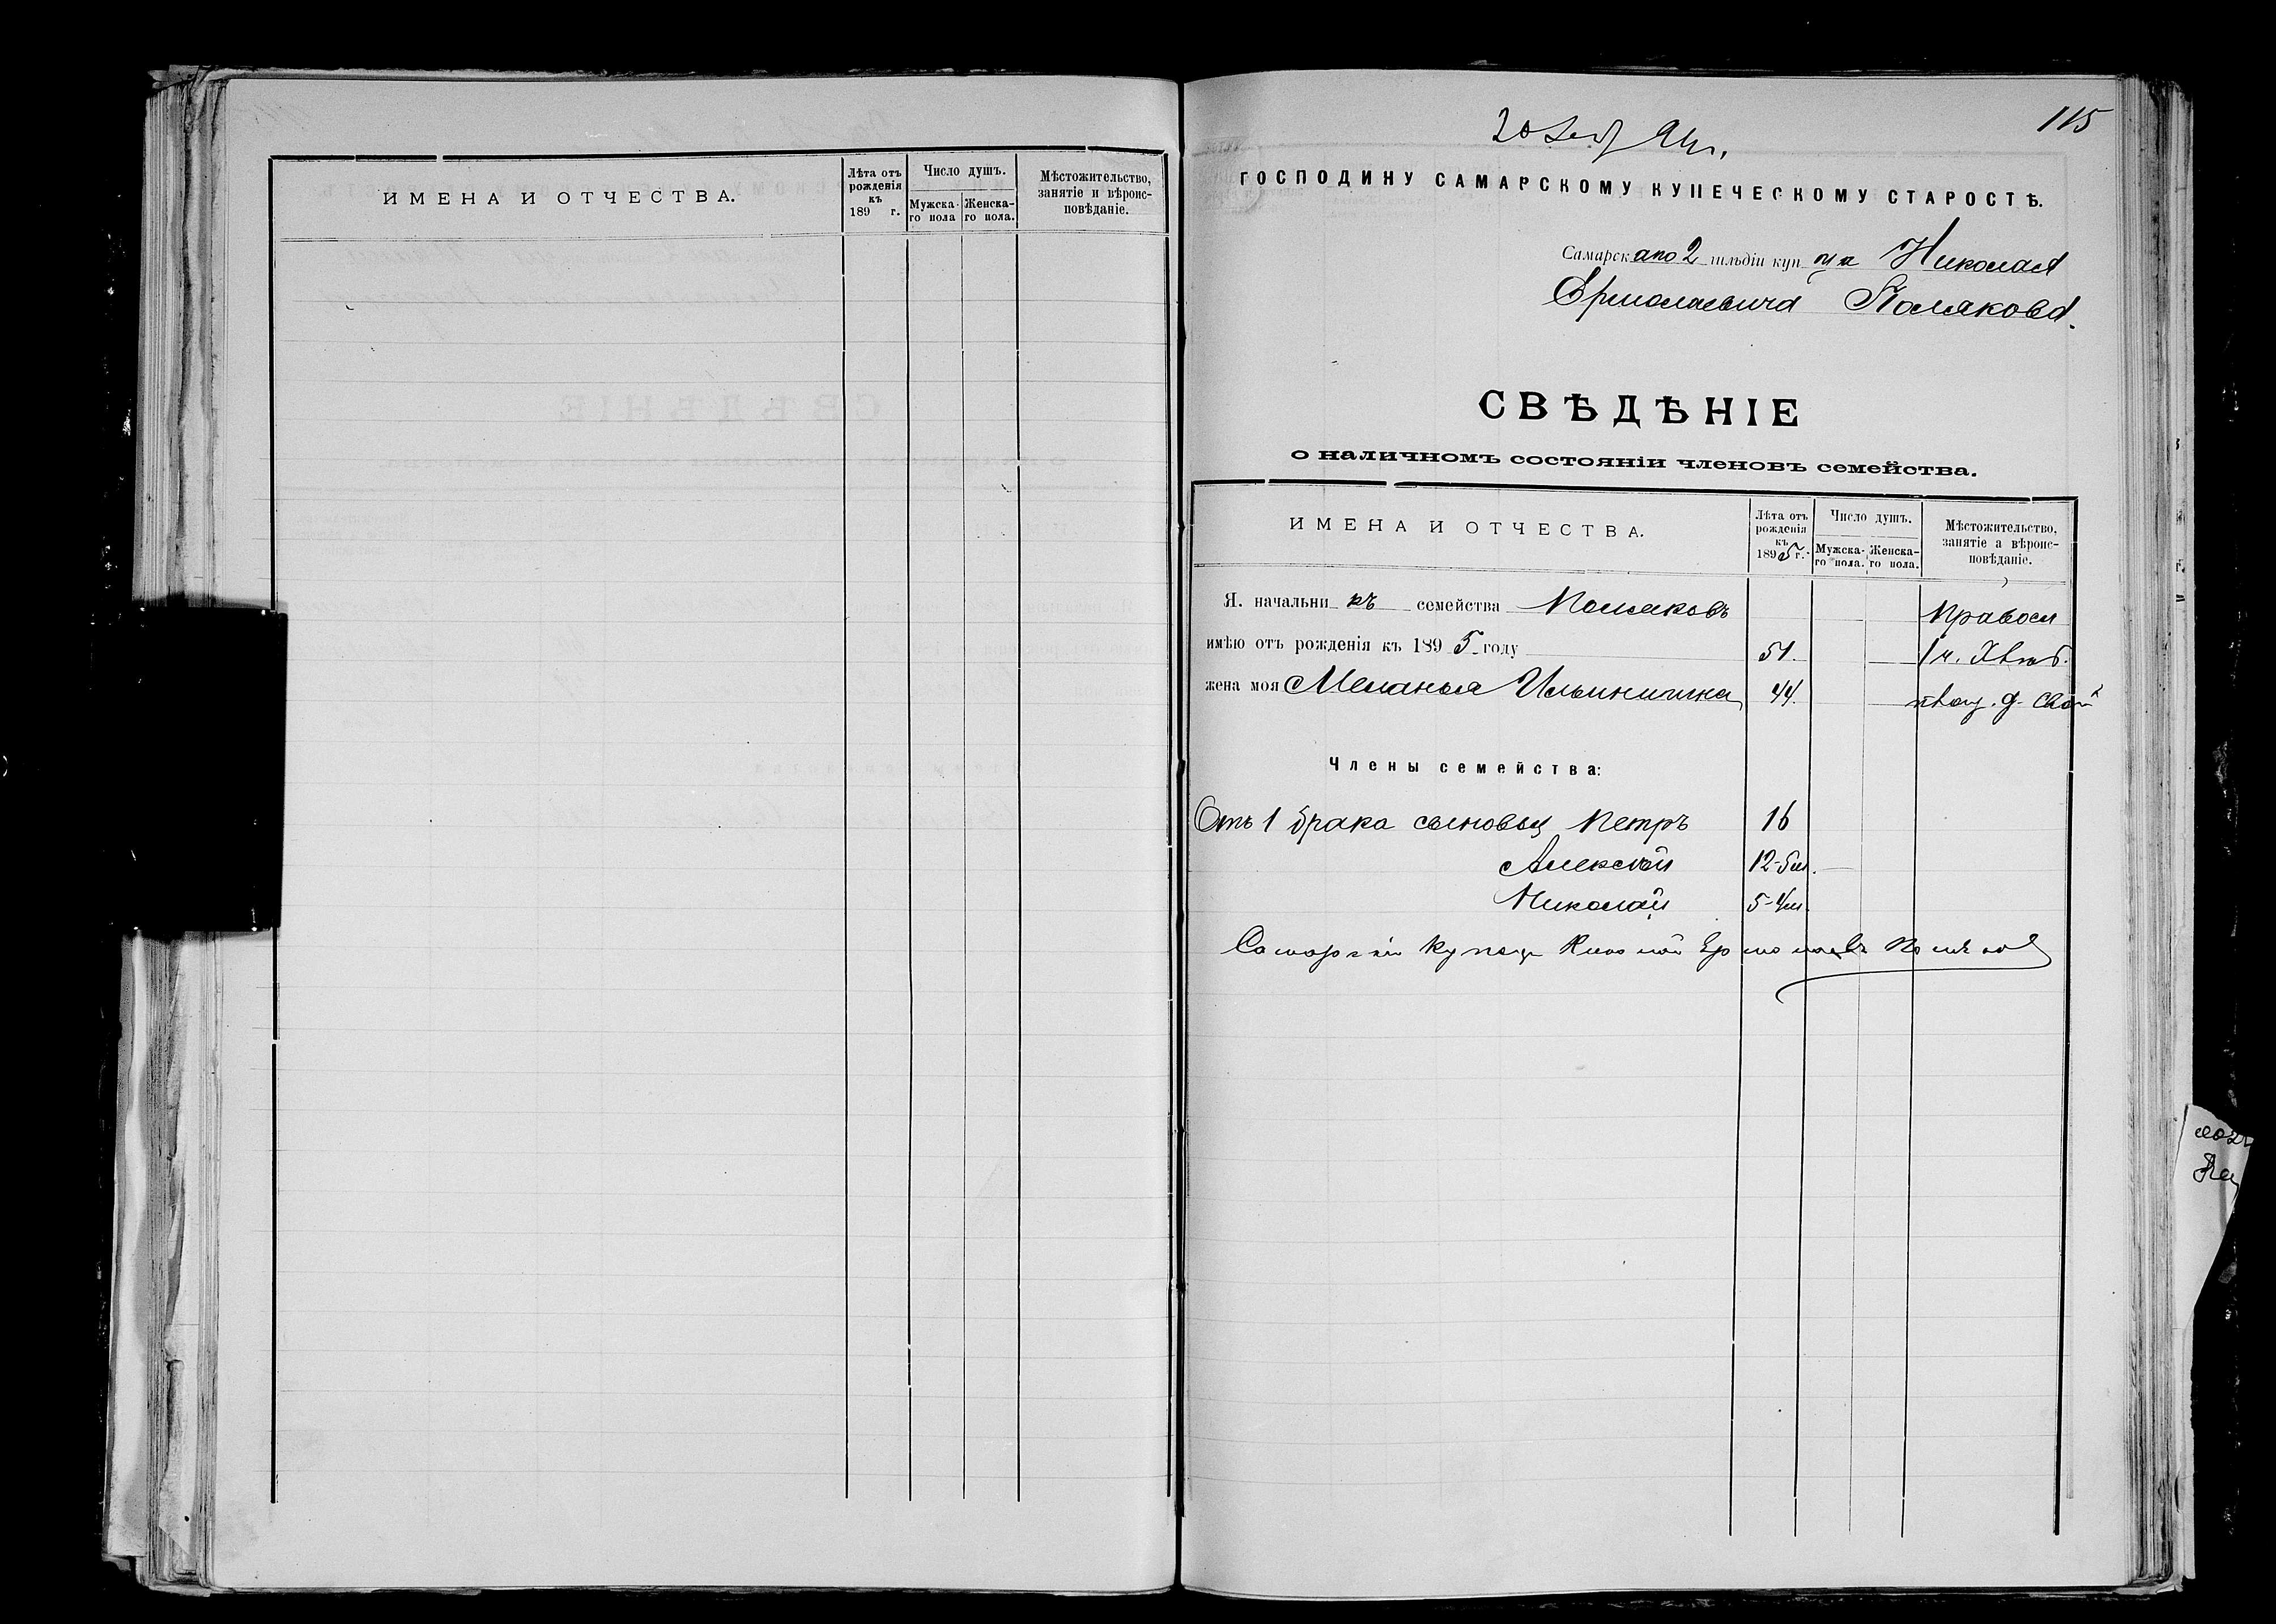 ИМЕНА И ОТЧЕСТВА.
Лѣта отъ рожденія къ 189 г.
Число душъ.
Мужска-го пола
Женска-го пола.
Мѣстожительство, занятіе и вѣроис-повѣданіе.
115
20
ГОСПОДИНУ САМАРСКОМУ КУПЕЧЕСКОМУ СТАРОСТѢ.
Самарскаго 2 гильдіи купца Николая
Ермолаевича Полякова.
СВѢДѢНІЕ
о наличномъ состояніи членовъ семейства.
ИМЕНА И ОТЧЕСТВА.
Лѣта отъ рожденія къ 1895 г.
Число душъ.
Мужска-го пола.
Женска-го пола.
Мѣстожительство, занятіе а вѣроис-повѣданіе.
Я. начальникъ семейства Поляковъ Правосл
имѣю отъ рожденія къ 1895 году 51. 1 ч.
жена моя Меланья Ильинишна 44. д. свой
Члены семейства:
Отъ 1 брака сыновья Петръ 16
Алексѣй 12-5м.
Николай 5-4м.
Самарскій Купецъ Ермолаевъ